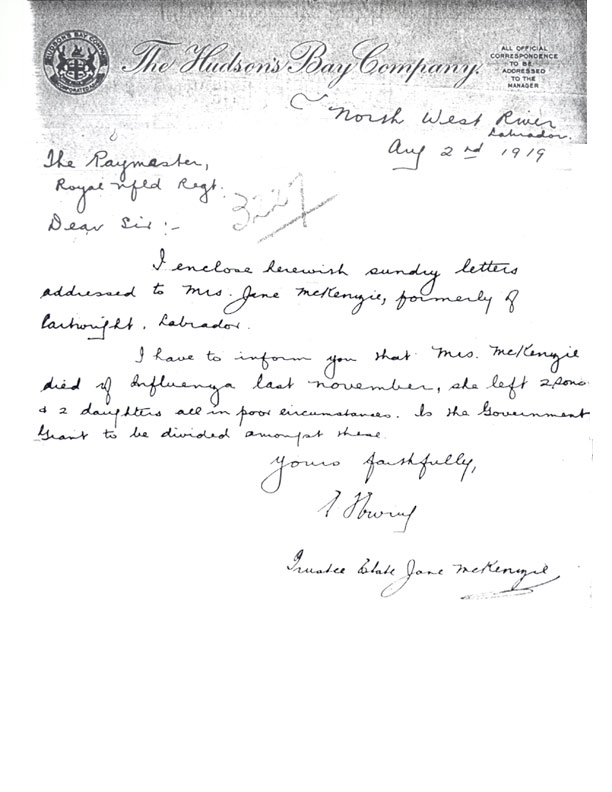 HUDSON'S BAY COMPANY
INCORPORATED 1670
The Hudson's Bay Company.
ALL OFFICIAL
CORRESPONDENCE
TO BE
ADDRESSED
TO THE
MANAGER
North West River
Labrador.
Aug 2nd 1919
The Paymaster,
Royal Nfld Regt.
Dear Sir:-
I enclose herewith sundry letters
addressed to Mrs. Jane McKenzie, formerly of
Cartwright, Labrador.
I have to inform you that Mrs. McKenzie
died of Influenza last november, she left 2 sons
& 2 daughters all in poor circumstances. Is the Government
Grant to be divided amongst these
Yours faithfully,
Trustee Estate Jane McKenzie